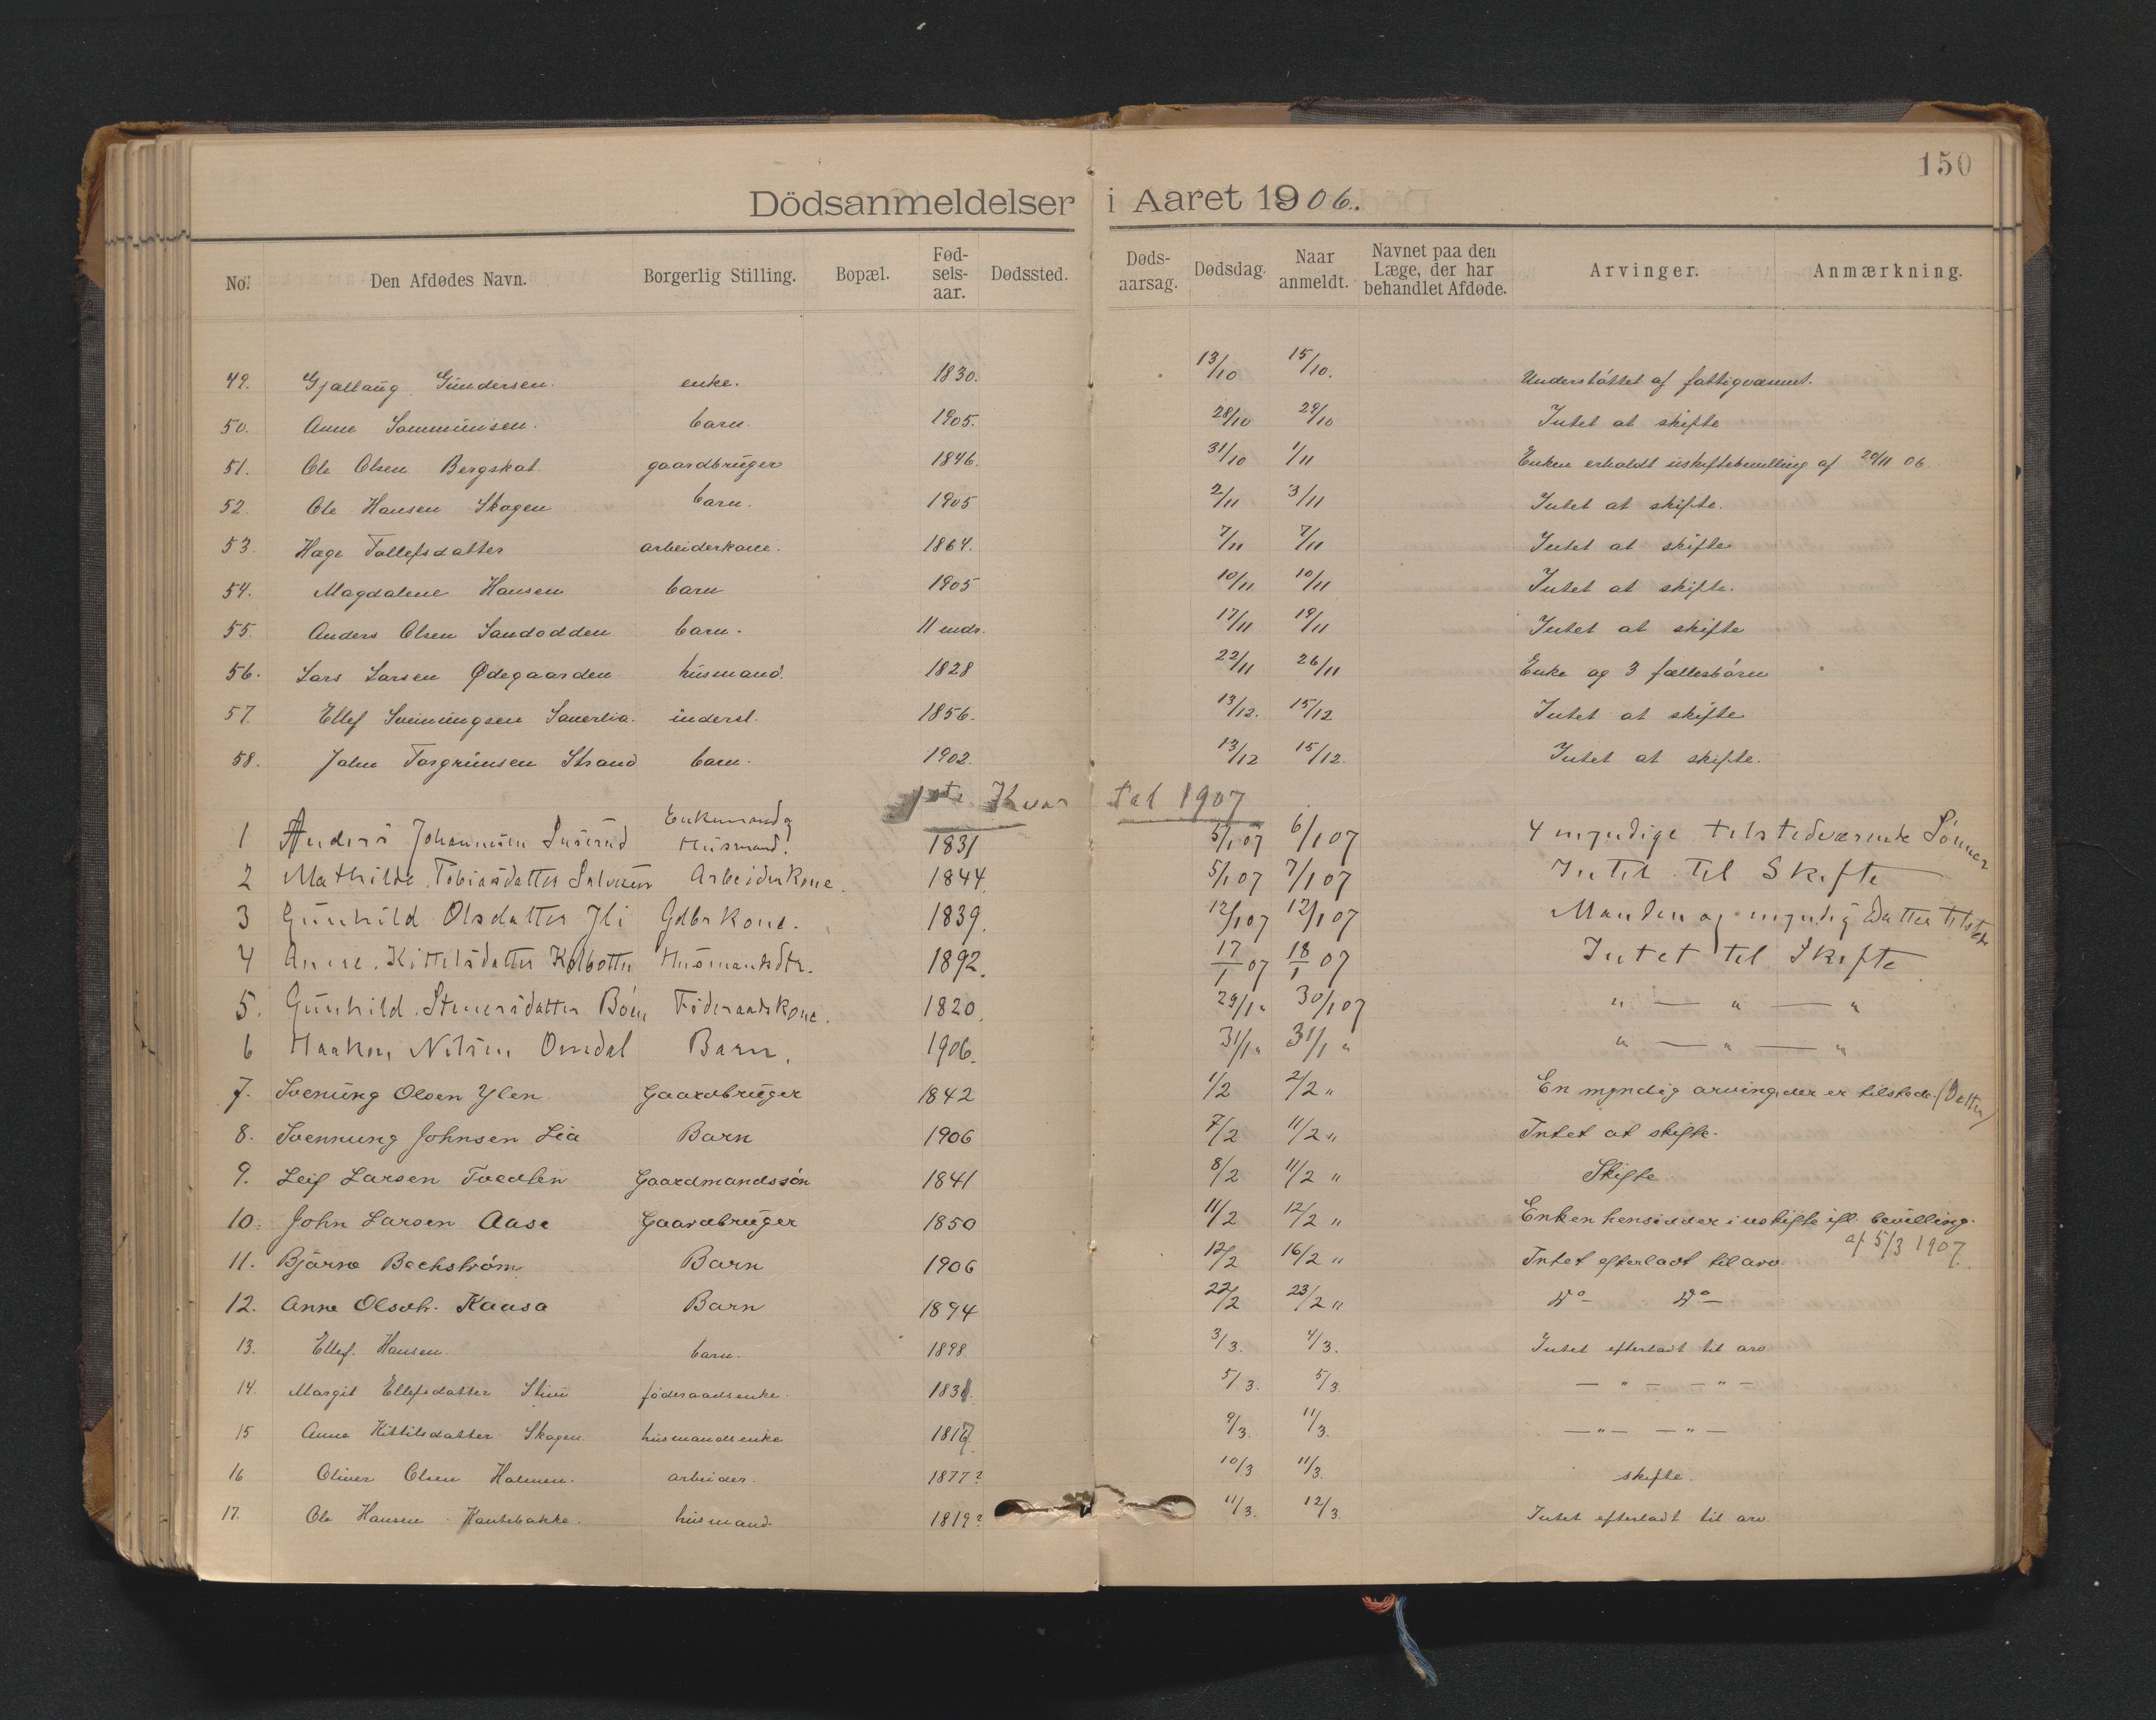 150
Dödsanmeldelser i Aaret 1906.
No. Den Afdødes Navn. Borgerlig Stilling. Bopæl. Fød-sels-aar. Dødssted. Døds-aarsag. Dødsdag. Naar anmeldt. Navnet paa den Læge, der har behandlet Afdøde. Arvinger. Anmærkning.
49. Gjallaug Gundersen. enke. 1830. 13/10 15/10. Understøttet af fattigvæsnet.
50. Anne Sommunsen. barn. 1905. 28/10 29/10 Intet at skifte
51. Ole Olsen Bergskat. gaardbruger 1846. 31/10 1/11 Enken erholdt uskiftebevilling af 20/11 06
52. Ole Hansen Skogen barn. 1905 2/11 3/11 Intet at skifte.
53. Hage Tollefsdatter arbeiderkone. 1864. 7/11 7/11 Intet at skifte
54. Magdalene Hansen barn 1905 10/11 10/11 Intet at skifte.
55. Anders Olsen Sandodden barn. 11 mdr. 17/11 19/11 Intet at skifte
56. Lars Larsen Ødegaarden husmand. 1828 22/11 26/11 Enke og 3 fællesbørn
57. Ellef Sveinungsen inderst. 1856. 13/12. 15/12 Intet at skifte
58. John Torgrimsen Strand barn. 1902. 13/12 15/12. Intet at skifte.
1ste Kvartal 1907
1 Anders Johannesen Enkemand og Husmand. 1831 5/1 07 6/1 07 4 myndige tilstedværende Sönner
2 Mathilde Tobiasdatter Arbeiderkone. 1844. 5/1 07 7/1 07 Intet til Skifte
3 Gunhild Olsdatter Jli Gdbrkone. 1839. 12/1 07 12/1 07 Manden og myndig Datter tilsted
4 Anne Kittilsdatter Kolbotn Husmandsdtr. 1892. 17/1 07 18/1 07 Intet til Skifte
5. Gunhild Stenersdatter Böen Föderaadskone. 1820. 29/1 " 30/1 07 " — " — "
6 Haakon Nilsen Omdal Barn. 1906. 31/1 " 31/1 " " — " — "
7. Svenung Olsen Ylen Gaardbruger 1842 1/2 2/2 " En myndig arving, der er tilstede. (Datter)
8. Svennung Johnsen Lia Barn 1906 7/2 11/2 " Intet at skifte.
9. Leif Larsen Tvedten Gaardmandssøn 1841 8/2 11/2 " Skifte
10. John Larsen Aase Gaardbruger 1850 11/2 12/2 " Enken hensidder i uskifte ifl. bevilling.
af 5/3 1907.
11. Bjarne Bechstrøm Barn 1906 12/2 16/2 " Intet efterladt til arv.
12. Anne Olsdtr. Kaasa Barn 1894 22/2 23/2 " Do Do
13. Ellef Hansen barn. 1898 3/3. 4/3. Intet efterladt til arv
14. Margit Ellefsdatter føderaadsenke. 1831. 5/3. 5/3. — " — — " —
15 Anne Kittilsdatter Skogen. husmandsenke 1817. 9/3. 11/3. — " — — " —
16 Oliver Olsen Holmen. arbeider. 1877? 10/3 11/3. skifte.
17. Ole Hansen Hantebakke. husmand 1819? 11/3. 12/3. Intet efterladt til arv.